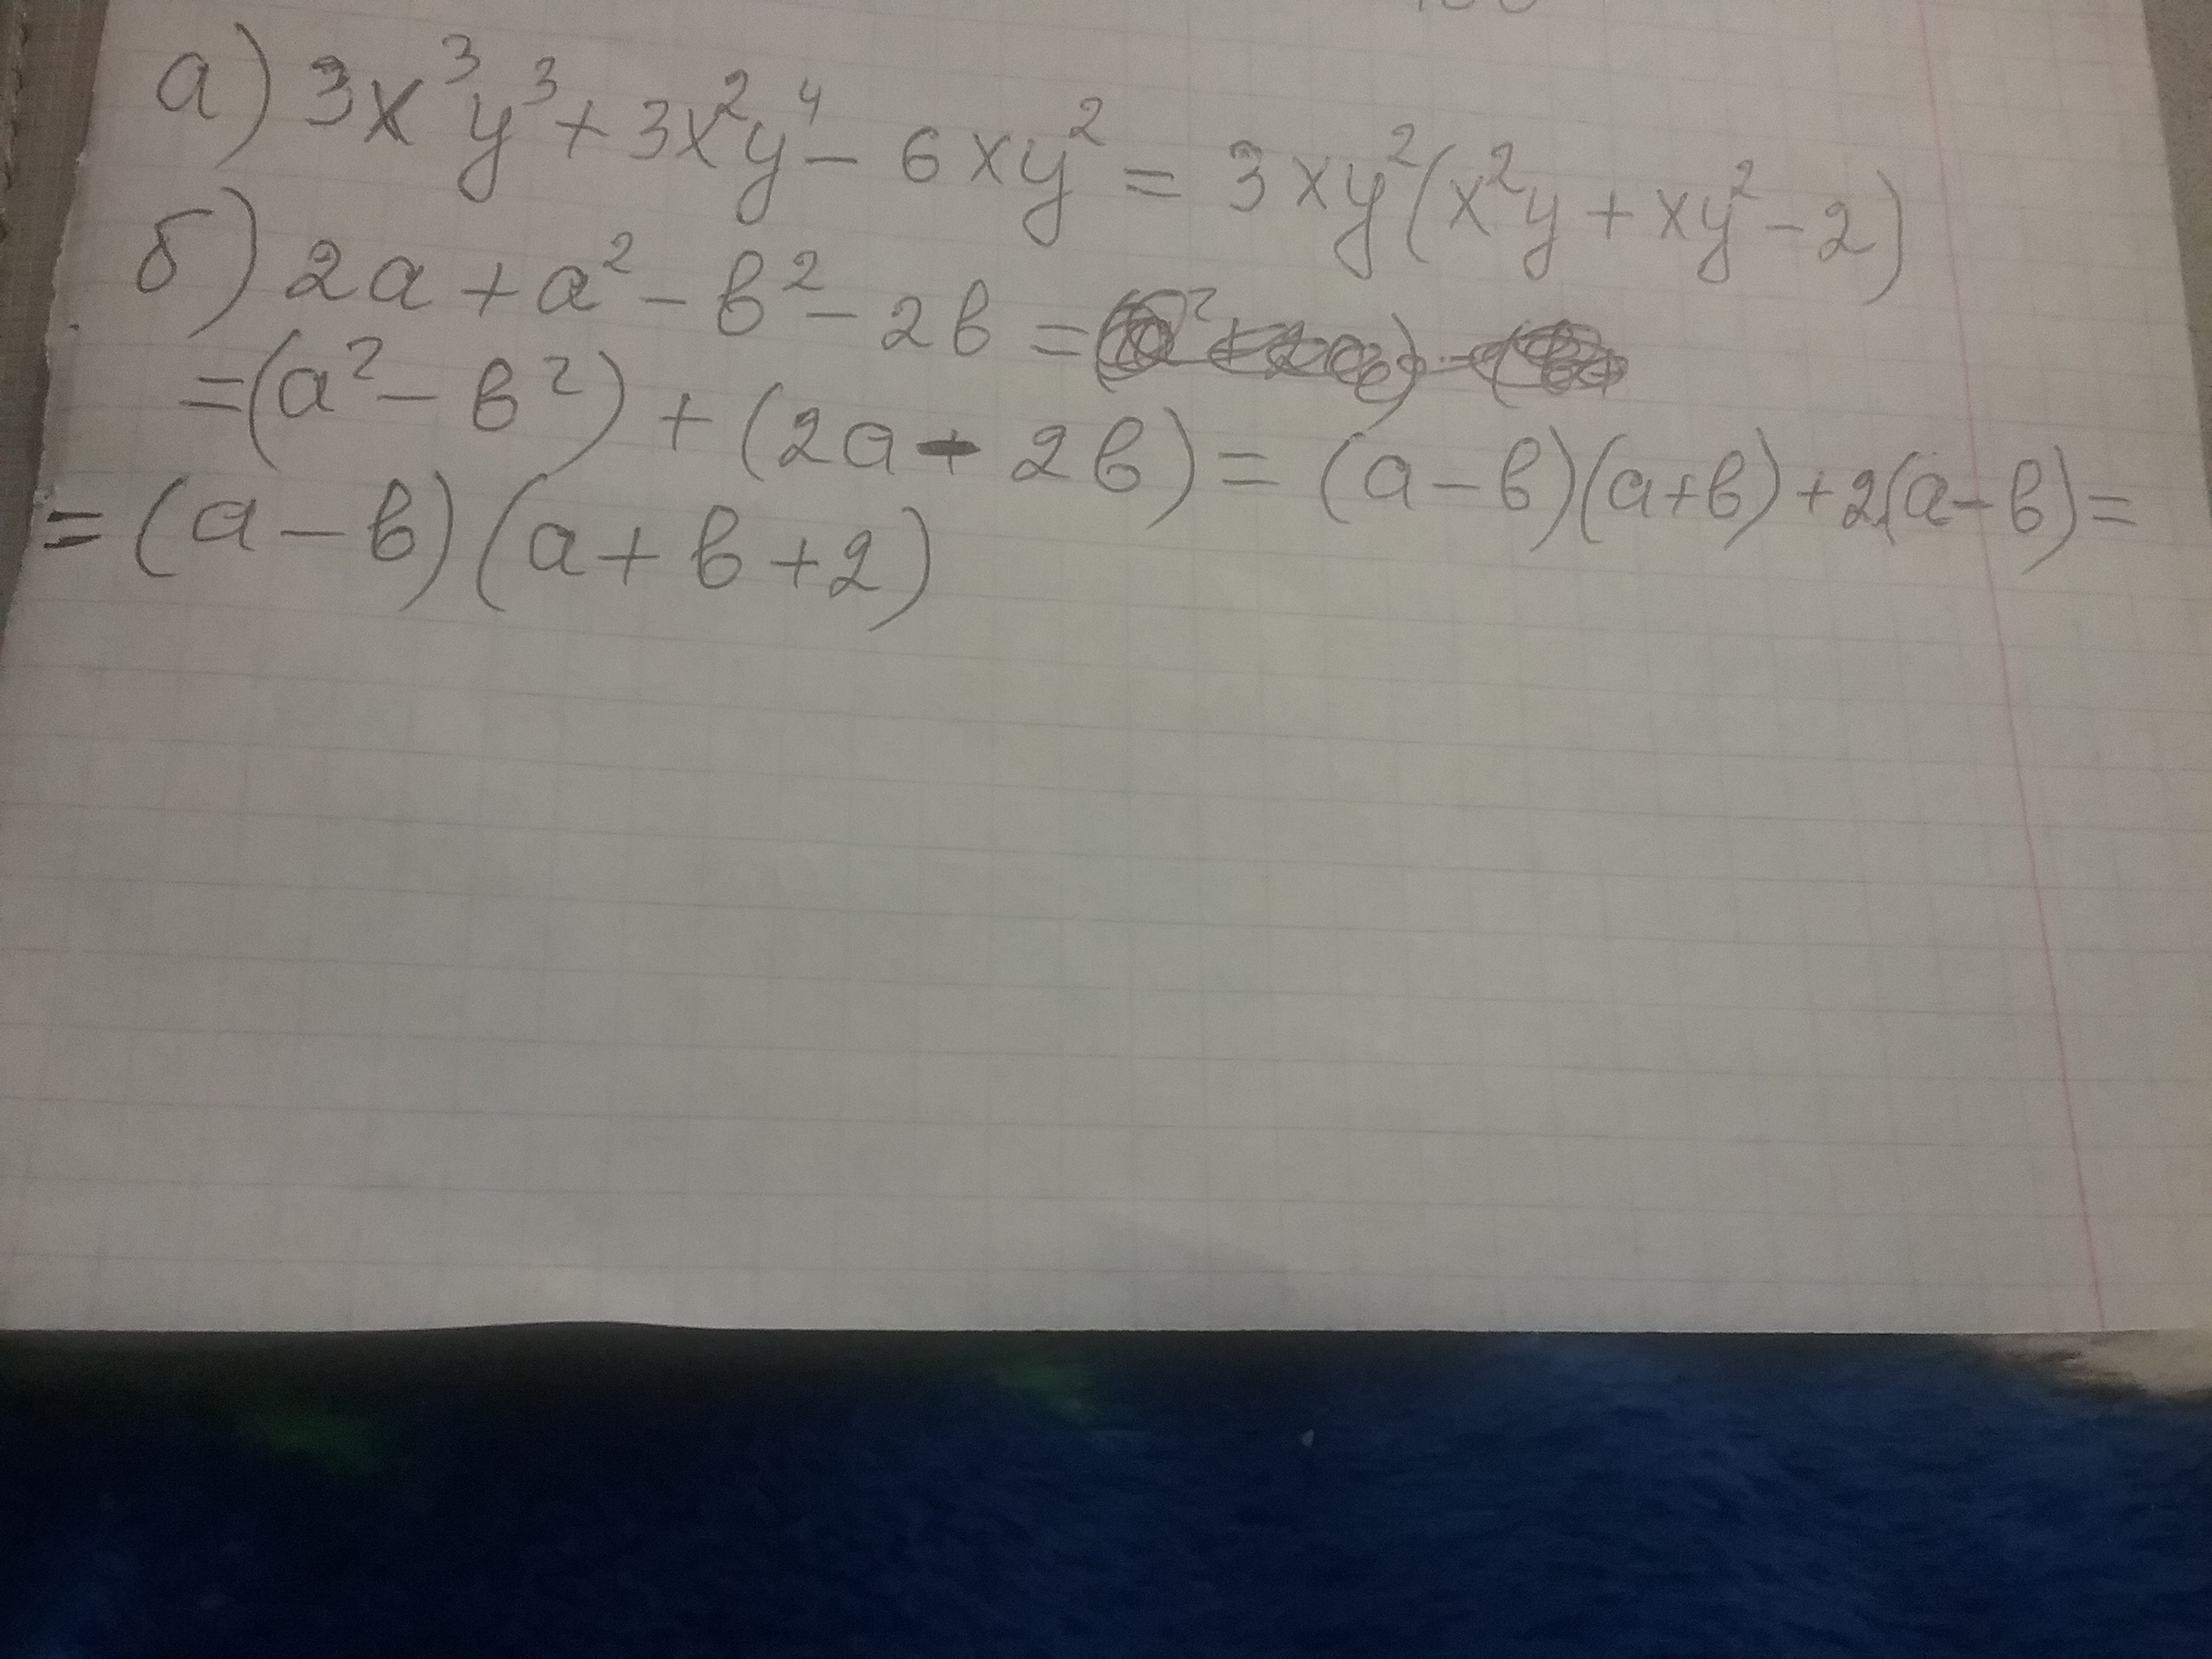 а) 3x³y³ + 3x²y⁴ - 6xy² = 3xy²(x²y + xy² - 2)
б) 2a + a² - в² - 2в =
= (a² - в²) + (2a - 2в) = (a - в)(a + в) + 2(a - в) =
= (a - в)(a + в + 2)